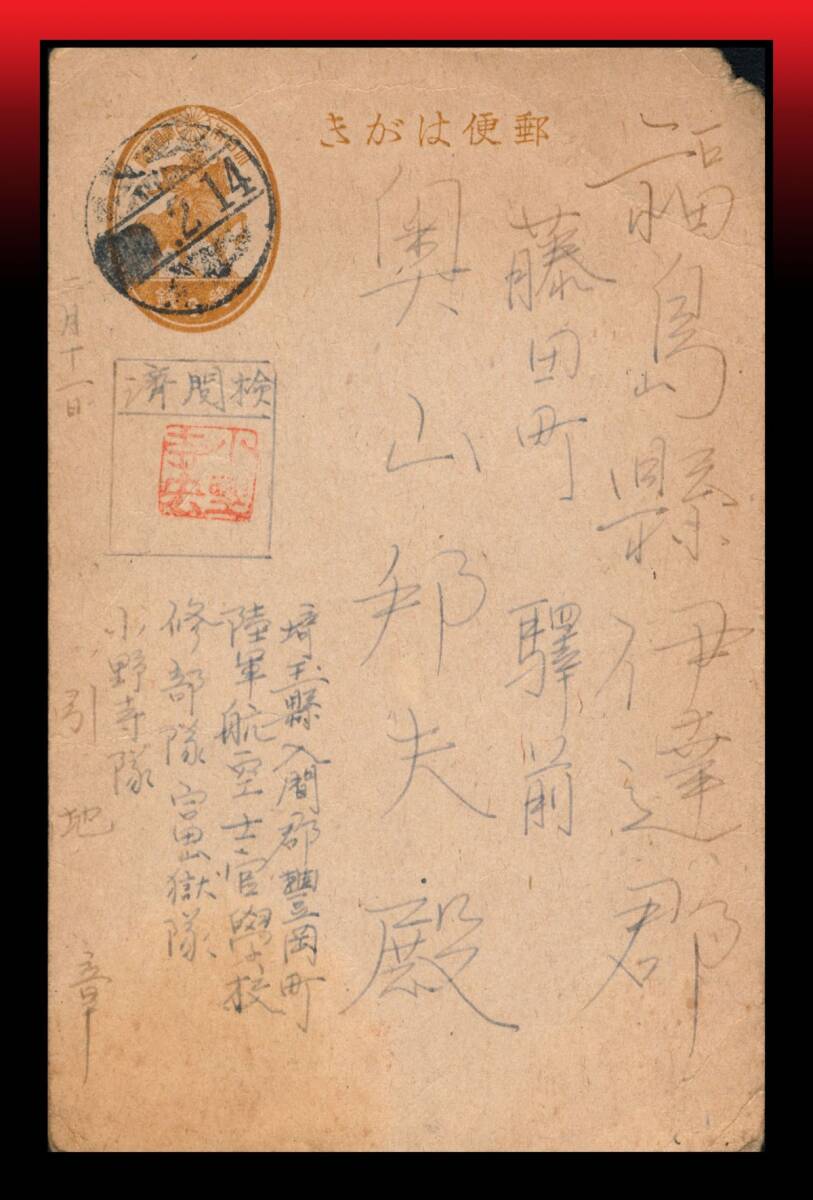 郵便はがき
福島縣伊達郡
藤田町 驛前
奥山邦夫殿
埼玉縣入間郡豐岡町
陸軍航空士官學校
修部隊富嶽隊
小野寺隊
引地 章
検閲済
小野寺
二月十一日
2.14